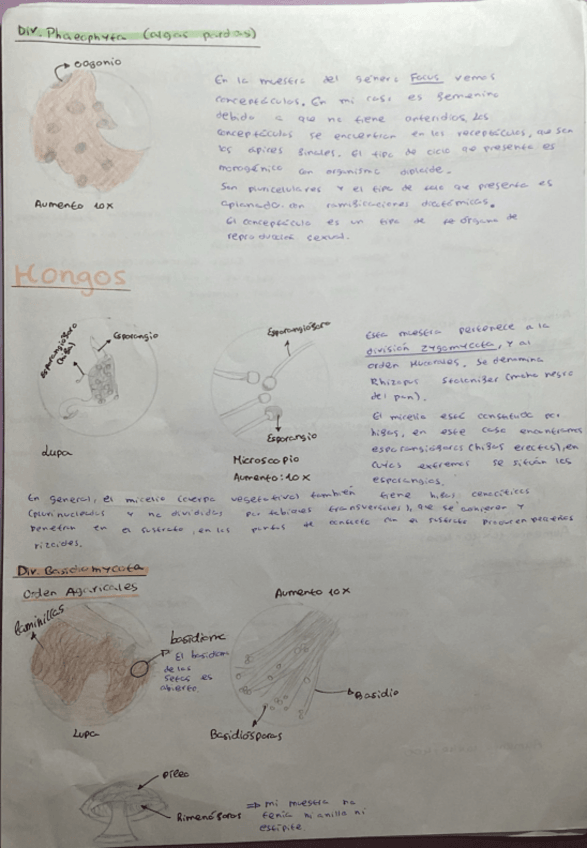 Div. Phaeophyta (algas pardas)
oogonio
Aumento 10X
En la muestra del género Focus vemos
conceptáculos. En mi caso es femenino
debido a que no tiene anteridios, los
conceptáculos se encuentran en los receptáculos, que son
los ápices finales. El tipo de ciclo que presenta es
monogénico con organismo diploide.
Son pluricelulares y el tipo de talo que presenta es
aplanado, con ramificaciones dicotómicas.
El conceptáculo es un tipo de órgano de
reproducción sexual.
Hongos
Esporangióforo
(hifa)
Esporangio
Lupa
Esporangióforo
Esporangio
Microscopio
Aumento: 10X
Esta muestra pertenece a la
división Zygomycota, y al
orden Mucorales. Se denomina
Rhizopus Stolonifer (moho negro
del pan).
El micelio está constituido por
hifas, en este caso encontramos
esporangióforos (hifas erectas), en
cuyos extremos se sitúan los
esporangios.
En general, el micelio (cuerpo vegetativo) también tiene hifas cenocíticas
(plurinucleadas y no divididas por tabiques transversales), que se extienden y
penetran en el sustrato, en los puntos de contacto con el sustrato producen pequeños
rizoides.
Div. Basidiomycota
Orden Agaricales
Laminillas
basidioma
El basidioma
de las
setas es
abierto
Lupa
Aumento 10X
Basidio
Basidiósporas
píleo
Himenóforos
⇒ Mi muestra no
tenía ni anillo ni
estípite.